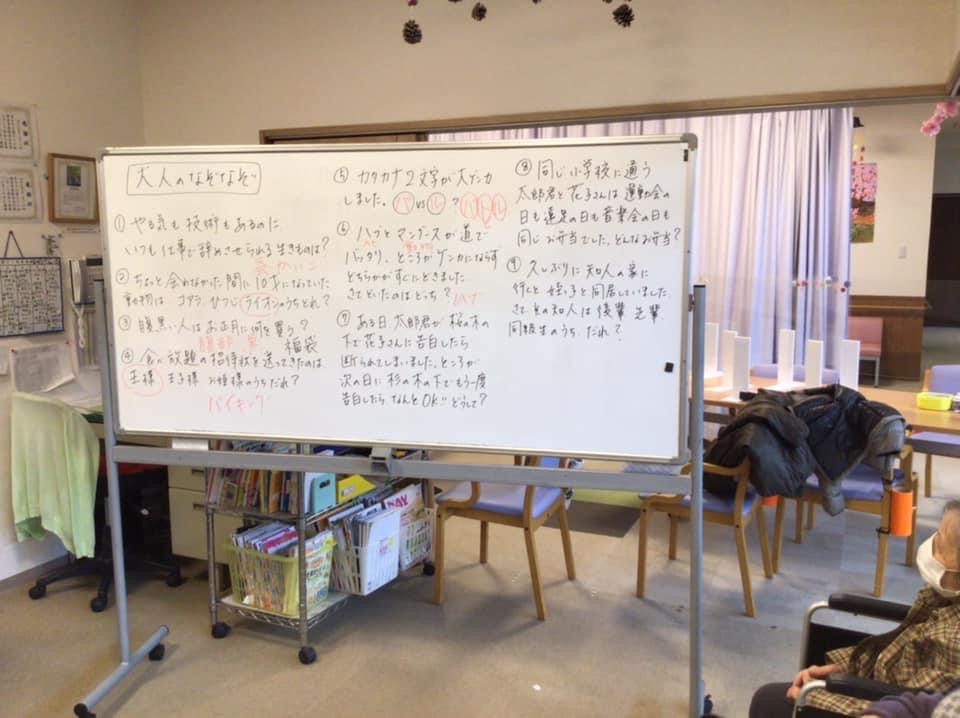 大人のなぞなぞ
① やる気も技術もあるのに
いつも仕事で辞めさせられる生きものは?
② ちょっと会わなかった間に10才になっていた
動物は、コアラ、ひつじ、ライオンのうちどれ?
③ 腹黒い人はお正月に何を買う?
腹部 黒 福袋
④ 食べ放題の招待状を送ってきたのは
王様 王子様 お姫様のうちだれ?
バイキング
⑤ カタカナ2文字が大ゲンカ
しました。バ vs ル ? バトル
⑥ ハブとマングースが道で
ヘビ
バッタリ。ところがケンカにならず
どちらかがすぐにどきました
さてどいたのはどっち? ハブ
⑦ ある日、太郎君が桜の木の
下で花子さんに告白したら
断られてしまいました。ところが
次の日に杉の木の下でもう一度
告白したら、なんとOK!! どうして?
⑧ 同じ小学校に通う
太郎君と花子さんは運動会の
日も遠足の日も音楽会の日も
同じお弁当でした。どんなお弁当?
⑨ 久しぶりに知人の家に
行くと姪っ子と同居していました
さて、その知人は後輩 先輩
同級生のうち、だれ?